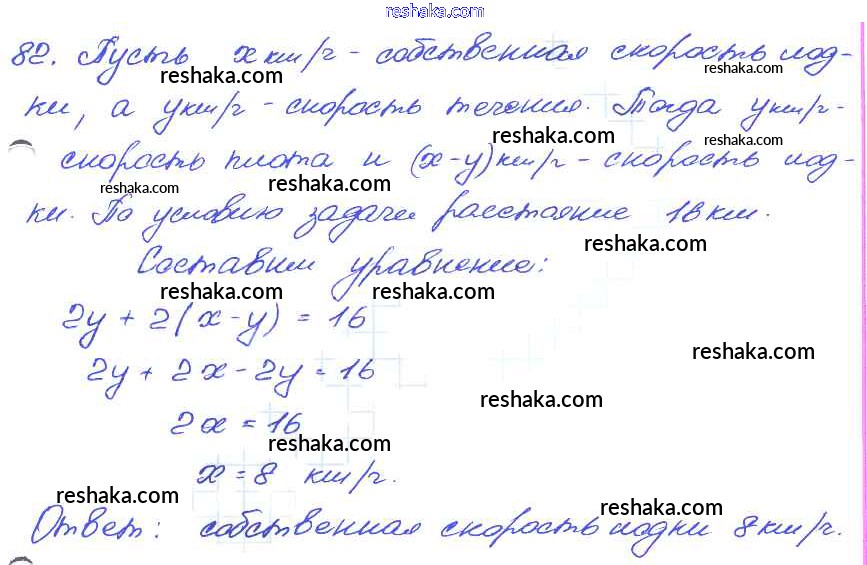 reshaka.com
82. Пусть x км/ч - собственная скорость лод-
reshaka.com reshaka.com
ки, а y км/ч - скорость течения. Тогда y км/ч-
reshaka.com reshaka.com
скорость плота и (x-y) км/ч - скорость лод-
reshaka.com reshaka.com
ки. По условию задачи расстояние 16 км.
reshaka.com
Составим уравнение:
reshaka.com reshaka.com
2y + 2(x-y) = 16
reshaka.com
2y + 2x - 2y = 16
reshaka.com
2x = 16
reshaka.com
x = 8 км/ч.
reshaka.com reshaka.com
Ответ: собственная скорость лодки 8 км/ч.